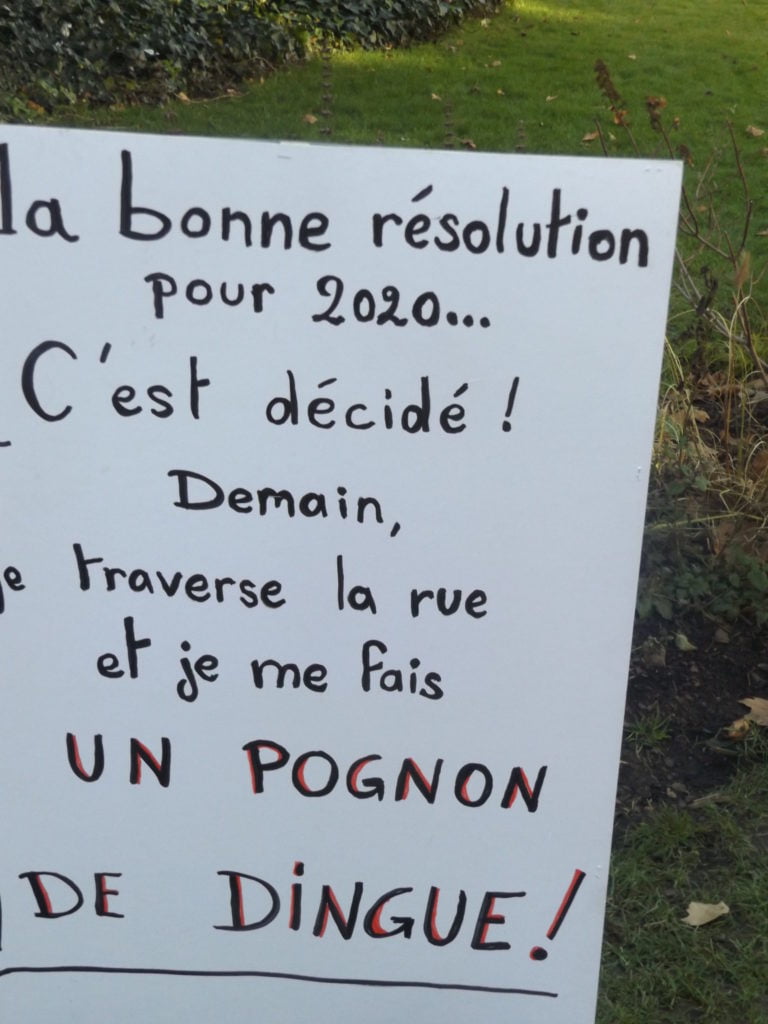 la bonne résolution
pour 2020...
C'est décidé !
Demain,
je traverse la rue
et je me fais
UN POGNON
DE DINGUE !